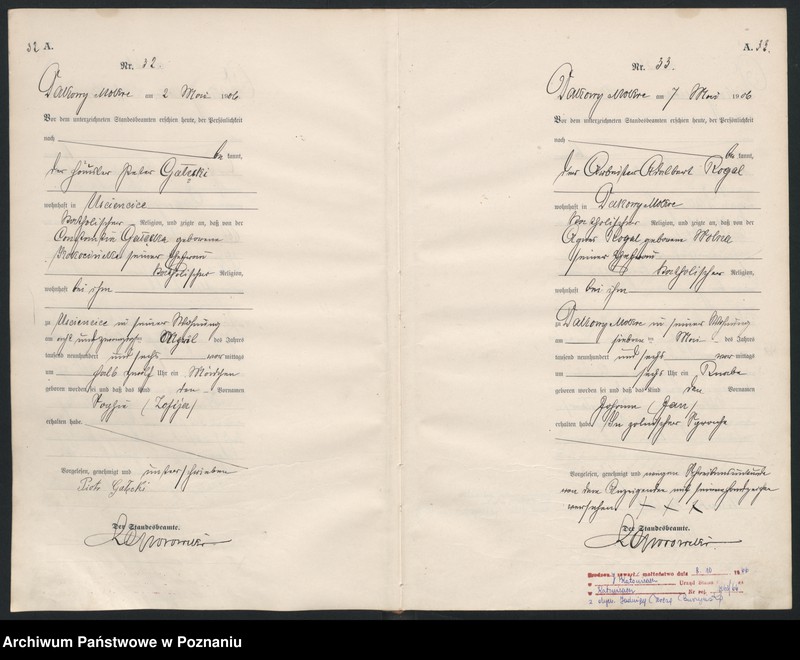 32 A.
Nr. 32.
Dakowy Mokre am 2 Mai 1906
Vor dem unterzeichneten Standesbeamten erschien heute, der Persönlichkeit
nach
be kannt,
der Häusler Peter Gałęski
wohnhaft in Usciencice
katholischer Religion, und zeigte an, daß von der
Constantia Gałęska geborene
seiner Ehefrau
katholischer Religion,
wohnhaft bei ihm
zu Usciencice in seiner Wohnung
am acht und zwanzigsten April des Jahres
tausend neunhundert und sechs vormittags
um halb zwölf Uhr ein Mädchen
geboren worden sei und daß das Kind den Vornamen
Sophie (Zofija)
erhalten habe.
Vorgelesen, genehmigt und unterschrieben
Piotr Gałęski
Der Standesbeamte.
A. 33.
Nr. 33.
Dakowy Mokre am 7 Mai 1906
Vor dem unterzeichneten Standesbeamten erschien heute, der Persönlichkeit
nach
be kannt,
der Arbeiter Adalbert Rogal
wohnhaft in Dakowy Mokre
katholischer Religion, und zeigte an, daß von der
Agnes Rogal geborene Wolna
seiner Ehefrau
katholischer Religion,
wohnhaft bei ihm
zu Dakowy Mokre in seiner Wohnung
am sieben Mai des Jahres
tausend neunhundert und sechs vormittags
um sechs Uhr ein Knabe
geboren worden sei und daß das Kind den Vornamen
Johann (Jan)
erhalten habe. In polnischer Sprache
Vorgelesen, genehmigt und wegen Schreibensunkunde
von dem Anzeigenden mit seinem Handzeichen
versehen. + + +
Der Standesbeamte.
małżeństwo dnia 8. 10 19
Katowicach Urząd Stanu
Katowicach Nr rej.
z Jadwigą
Archiwum Państwowe w Poznaniu